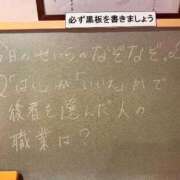 必ず黒板を書きましょう
今日のせいらのなぞなぞ。
Q「はし」か「いいた」かで
後者を選んだ人の
職業は？